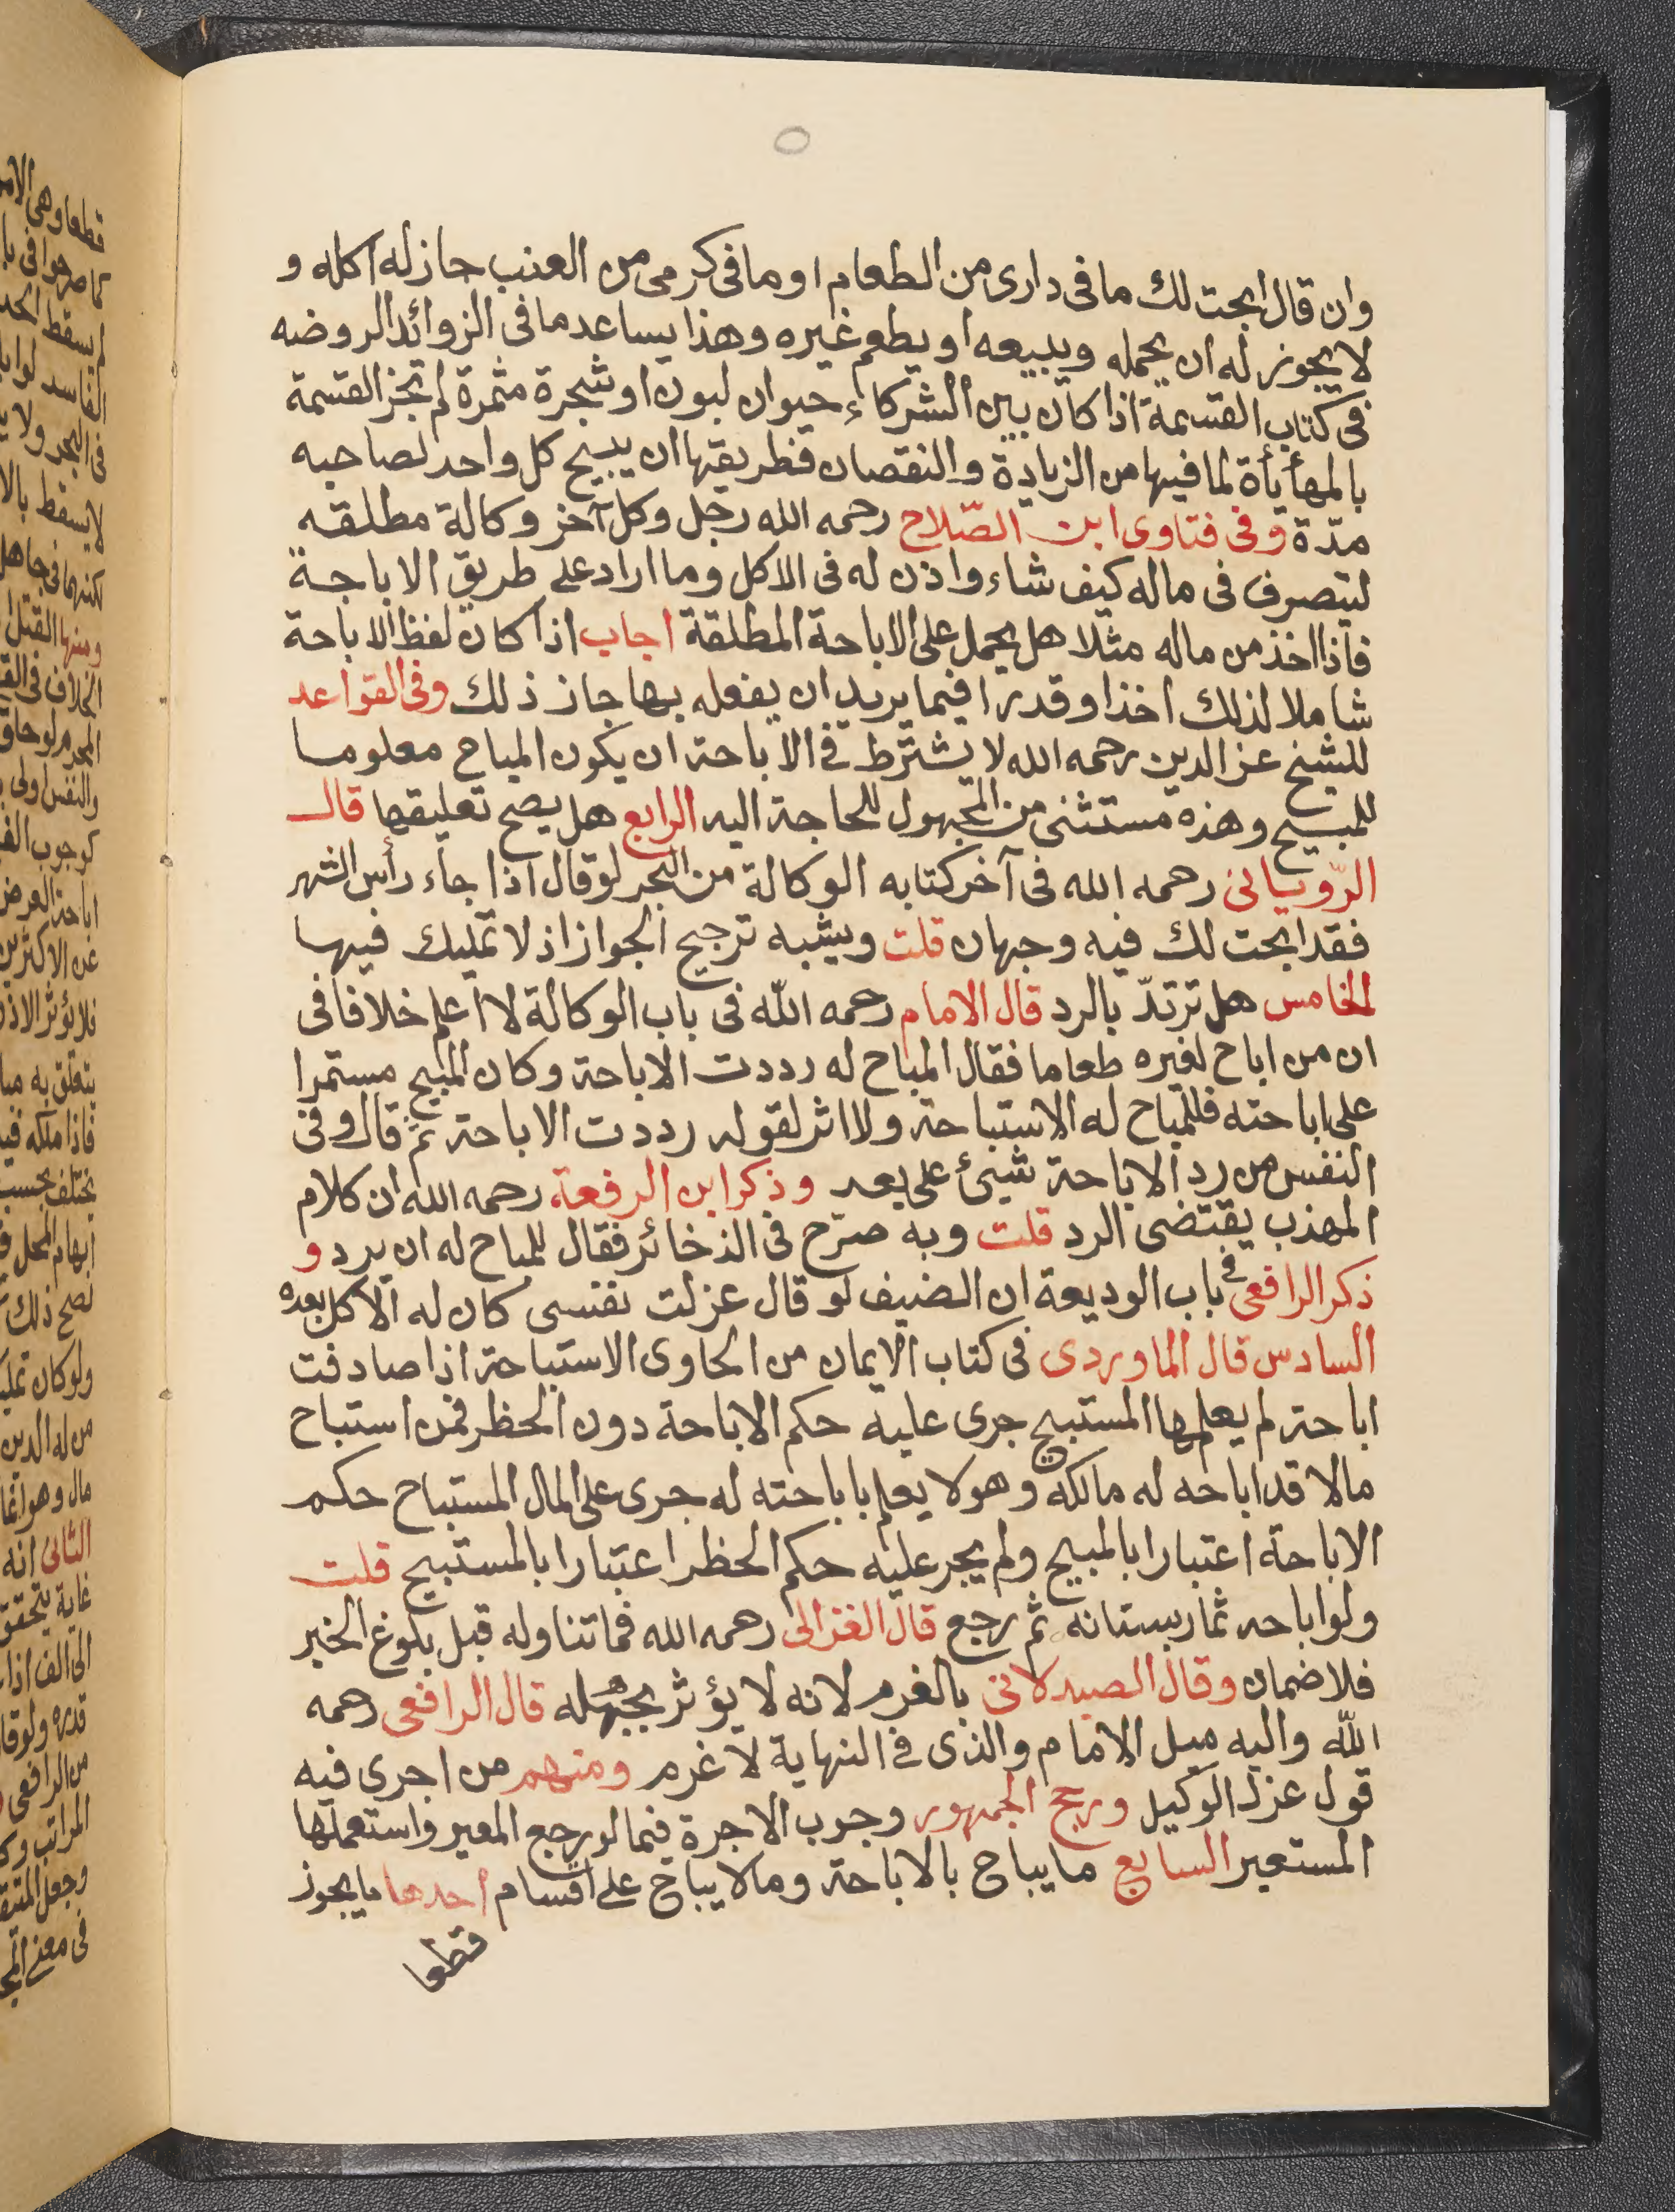 وان قال ابحت لك ما فى دارى من الطعام او ما فى كرمى من العنب جاز له اكله و
لا يجوز له ان يحمله ويبيعه او يطعم غيره وهذا يساعد ما فى الزوائد الروضه
فى كتاب القسمة اذا كان بين الشركاء حيوان لبون او شجرة مثمرة لم تجز القسمة
بالمهأيأة لما فيها من الزيادة والنقصان فطريقها ان يبيح كل واحد لصاحبه
مدّة وفى فتاوى ابن الصّلاح رحمه الله رجل وكل آخر وكالة مطلقه
ليتصرف فى ماله كيف شاء واذن له فى الاكل وما اراد على طريق الاباحة
فاذا اخذ من ماله مثلا هل يحمل على الاباحة المطلقة اجاب اذا كان لفظ الاباحة
شاملا لذلك اخذا وقدرا فيما يريد ان يفعله بها جاز ذلك وفى القواعد
للشيخ عز الدين رحمه الله لا يشترط فى الاباحة ان يكون المباح معلوما
للمبيح وهذه مستثنى من المجهول للحاجة اليه الرابع هل يصح تعليقها قال
الرّويانى رحمه الله فى آخر كتابه الوكالة من البحر لو قال اذا جاء رأس الشهر
فقد ابحت لك فيه وجهان قلت ويشبه ترجيح الجواز اذ لا تمليك فيها
الخامس هل ترتدّ بالرد قال الامام رحمه الله فى باب الوكالة لا اعلم خلافا فى
ان من اباح لغيره طعاما فقال المباح له رددت الاباحة وكان المبيح مستمرا
على اباحته فللمباح له الاستباحة ولا اثر لقوله رددت الاباحة ثم قال وفى
النفس من رد الاباحة شيئ على بعد وذكر ابن الرفعة رحمه الله ان كلام
المهذب يقتضى الرد قلت وبه صرّح فى الذخائر فقال للمباح له ان يرد و
ذكر الرافعى فى باب الوديعة ان الضيف لو قال عزلت نفسى كان له الاكل بعده
السادس قال الماوردى فى كتاب الايمان من الحاوى الاستباحة اذا صادفت
اباحة لم يعلمها المستبيح جرى عليه حكم الاباحة دون الحظر فمن استباح
مالا قد اباحه له مالكه وهو لا يعلم باباحته له جرى على المال المستباح حكم
الاباحة اعتبارا بالمبيح ولم يجر عليه حكم الحظر اعتبارا بالمستبيح قلت
ولو اباحه ثمار بستانه ثم رجع قال الغزالى رحمه الله فما تناوله قبل بلوغ الخبر
فلا ضمان وقال الصيدلانى بالغرم لانه لا يؤثر بجهله قال الرافعى رحمه
الله واليه ميل الامام والذى فى النهاية لا غرم ومنهم من اجرى فيه
قول عزل الوكيل ورجح الجمهور وجوب الاجرة فيما لو رجع المعير واستعملها
المستعير السابع ما يباح بالاباحة وما لا يباح على اقسام احدها ما يجوز
قطعا